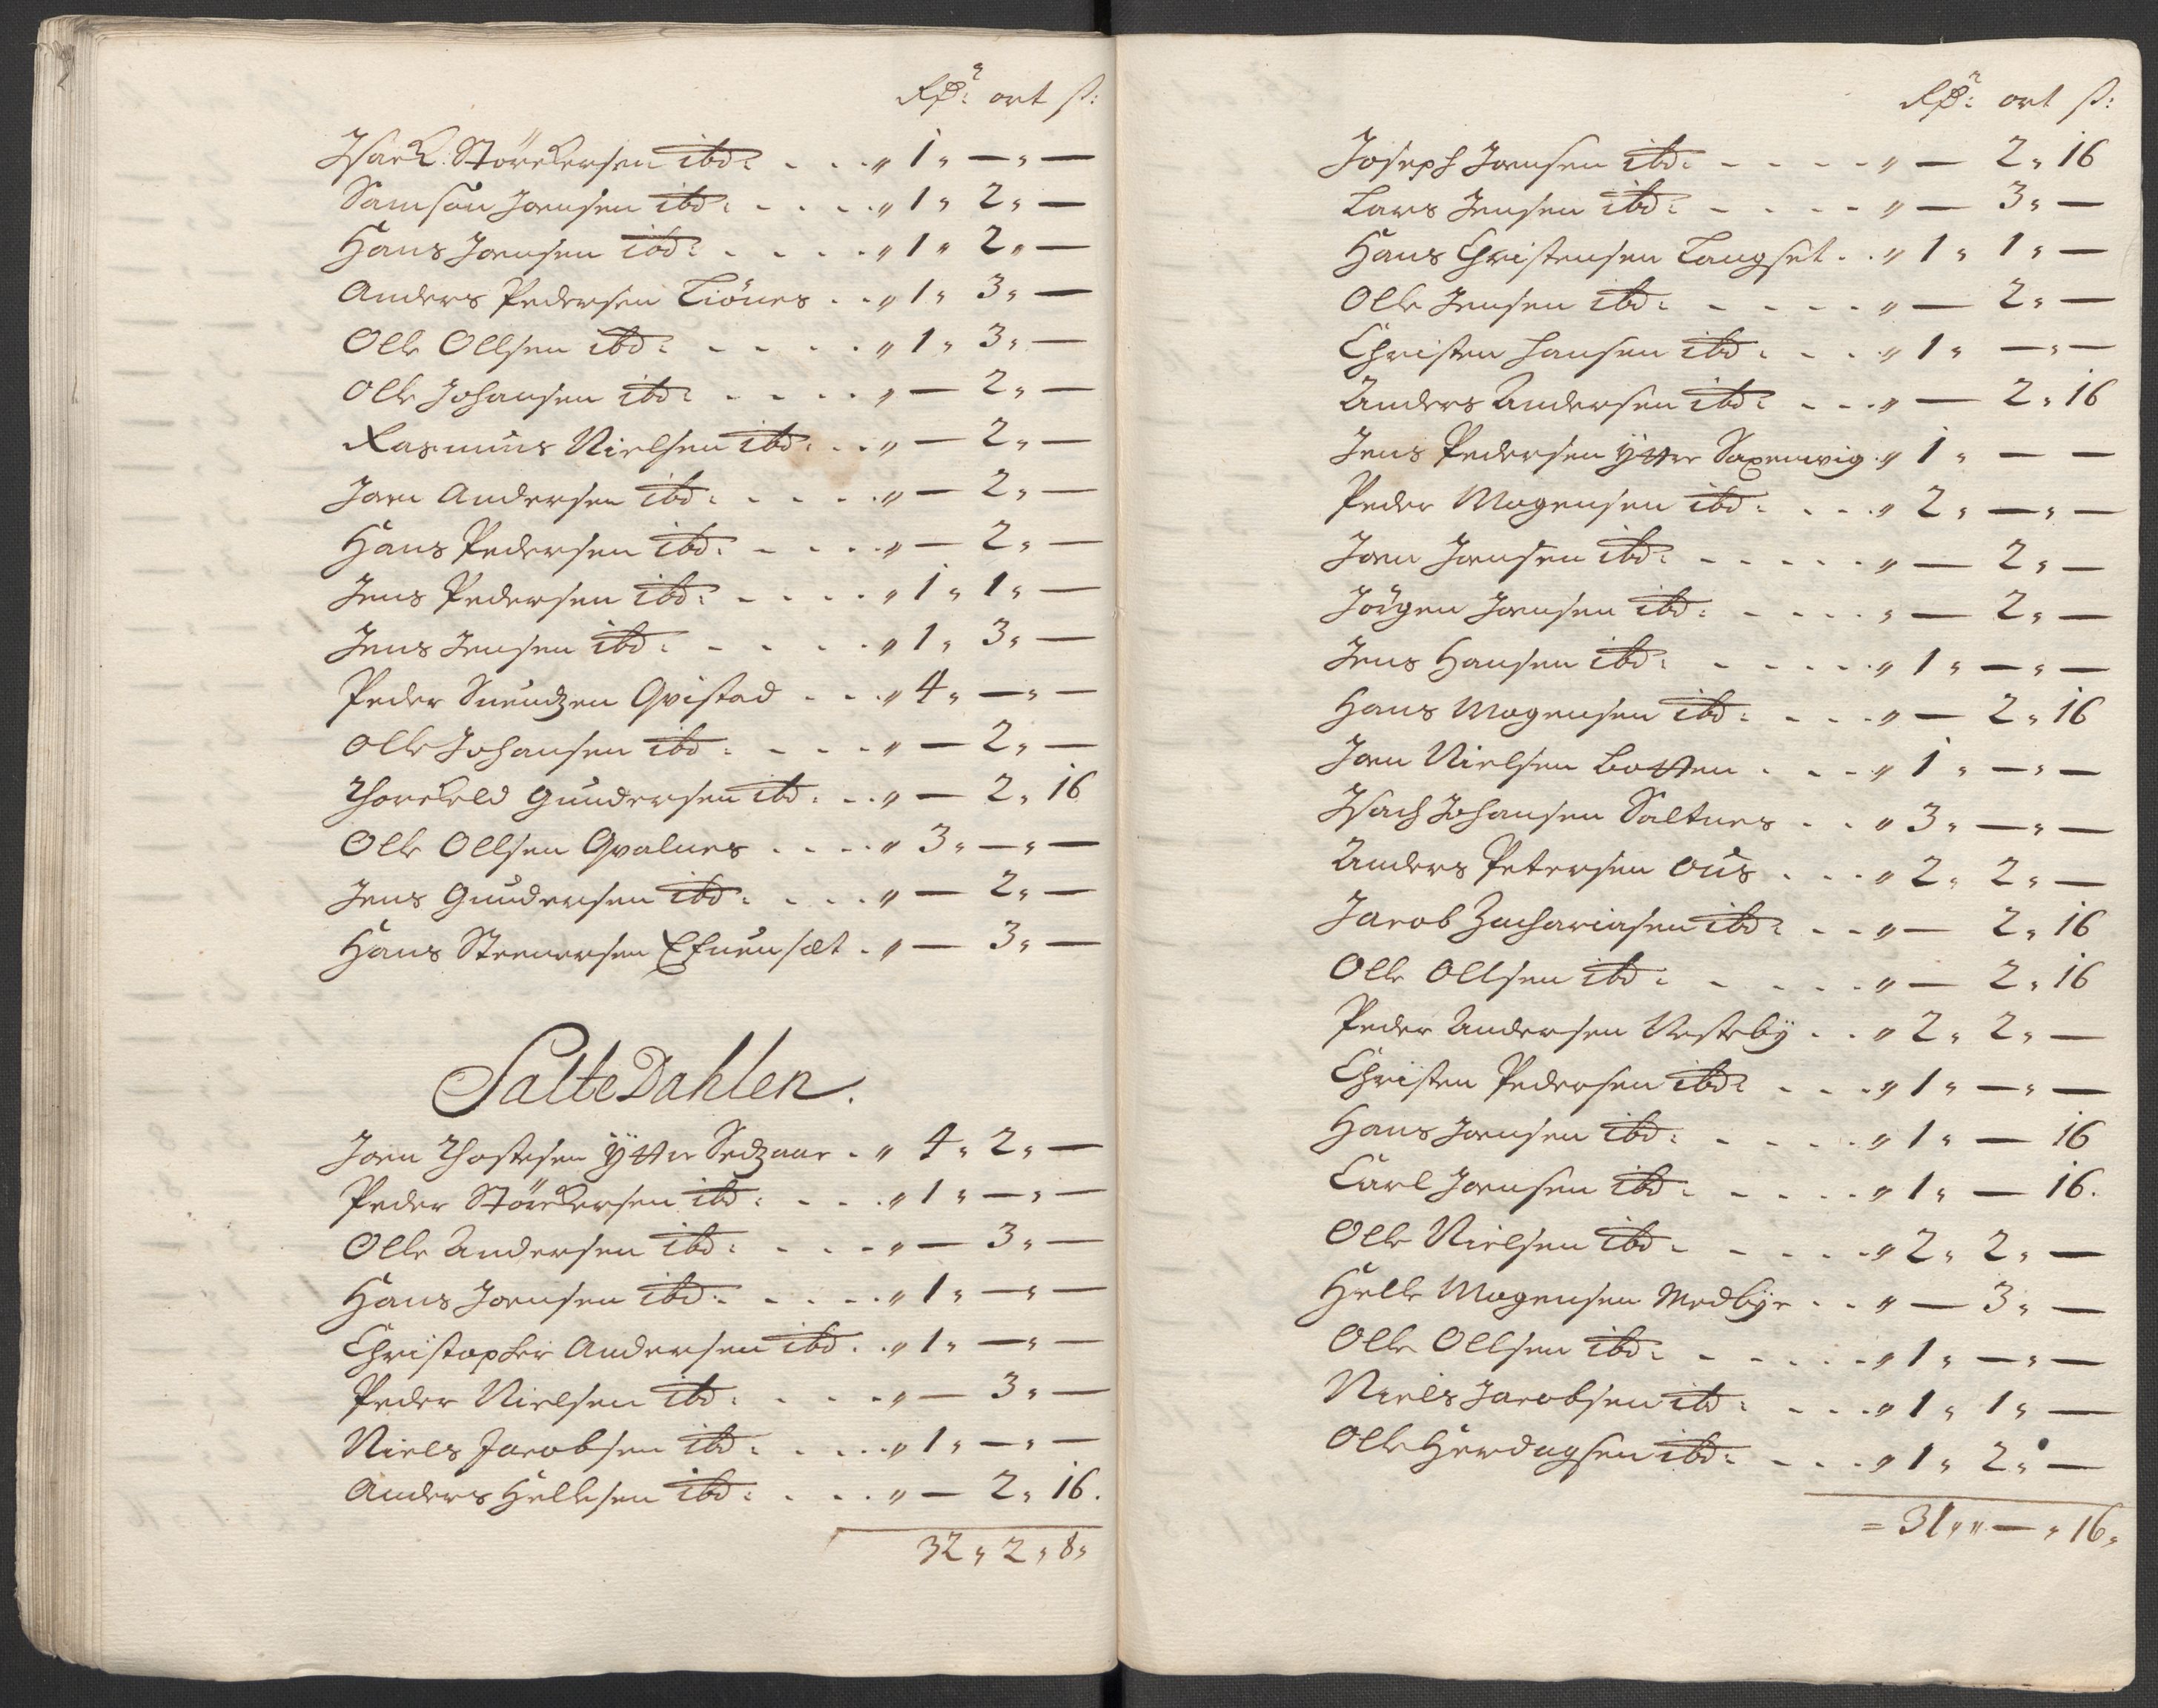 Rdr: ort s:
Isack Störckersen ibd: - - - „ 1 „ — „ —
Samson Jonsen ibd: - - - - „ 1 „ 2 „ —
Hans Jonsen ibd: - - - - „ 1 „ 2 „ —
Anders Pedersen Liönes - - „ 1 „ 3 „ —
Olle Ollsen ibd: - - - - „ 1 „ 3 „ —
Olle Johansen ibd: - - - - „ — 2 „ —
Rasmus Nielsen ibd: - - „ — 2 „ —
Jon Andersen ibd: - - - - „ — 2 „ —
Hans Pedersen ibd: - - - - „ — 2 „ —
Jens Pedersen ibd: - - - - „ 1 „ 1 „ —
Jens Jensen ibd: - - - - „ 1 „ 3 „ —
Peder Suendzen Qvistad - - - „ 4 „ — „ —
Olle Johansen ibd: - - - - „ — 2 „ —
Thorckeld Gundersen ibd: - - „ — 2 „ 16
Olle Ollsen Qvalnes - - - - „ 3 „ — „ —
Jens Gundersen ibd: - - - - „ — 2 „ —
Hans Steenersen Efuensæt - „ — 3 „ —
Salte Dahlen.
Jon Thostesen Ÿttre - „ 4 „ 2 „ —
Peder Störckersen ibd: - - - „ 1 „ — „ —
Olle Andersen ibd: - - - - „ — 3 „ —
Hans Jonsen ibd: - - - - „ 1 „ — „ —
Christopher Andersen ibd: - „ 1 „ — „ —
Peder Nielsen ibd: - - - - „ — 3 „ —
Niels Jacobsen ibd: - - - - „ 1 „ — „ —
Anders Hellesen ibd: - - - „ — 2 „ 16.
32 „ 2 „ 8 „
Rdr: ort s:
Joseph Jonsen ibd: - - - - - „ — 2 „ 16
Lars Jensen ibd: - - - - „ — 3 „ —
Hans Christensen Langset - - „ 1 „ 1 „ —
Olle Jensen ibd: - - - - - „ — 2 „ —
Christen Hansen ibd: - - - „ 1 „ — „ —
Anders Andersen ibd: - - - „ — 2 „ 16
Jens Pedersen Ÿttre Saxenvig - „ 1 „ — —
Peder Mogensen ibd: - - - „ 2 „ — „ —
Jon Jonsen ibd: - - - - - „ — 2 „ —
Jörgen Jonsen ibd: - - - - „ — 2 „ —
Jens Hansen ibd: - - - - - „ 1 „ — „ —
Hans Mogensen ibd: - - - - „ — 2 „ 16
Jon Nielsen Botten - - - „ 1 „ — „ —
Isach Johansen Saltnes - - „ 3 „ — „ —
Anders Petersen Ous - - - „ 2 „ 2 „ —
Jacob Zachariasen ibd: - - „ — 2 „ 16
Olle Ollsen ibd: - - - - - „ — 2 „ 16
Peder Andersen Vestebÿ - - „ 2 „ 2 „ —
Christen Pedersen ibd: - - - „ 1 „ — „ —
Hans Jonsen ibd: - - - - „ 1 „ — 16
Carl Jonsen ibd: - - - - „ 1 „ — 16.
Olle Nielsen ibd: - - - - „ 2 „ 2 „ —
Helle Mogensen Medbÿe - - „ — 3 „ —
Olle Ollsen ibd: - - - - - „ 1 „ — „ —
Niels Jacobsen ibd: - - - „ 1 „ 1 „ —
Olle Herdagsen ibd: - - - „ 1 „ 2 „ —
= 31 „ „ — „ 16 „